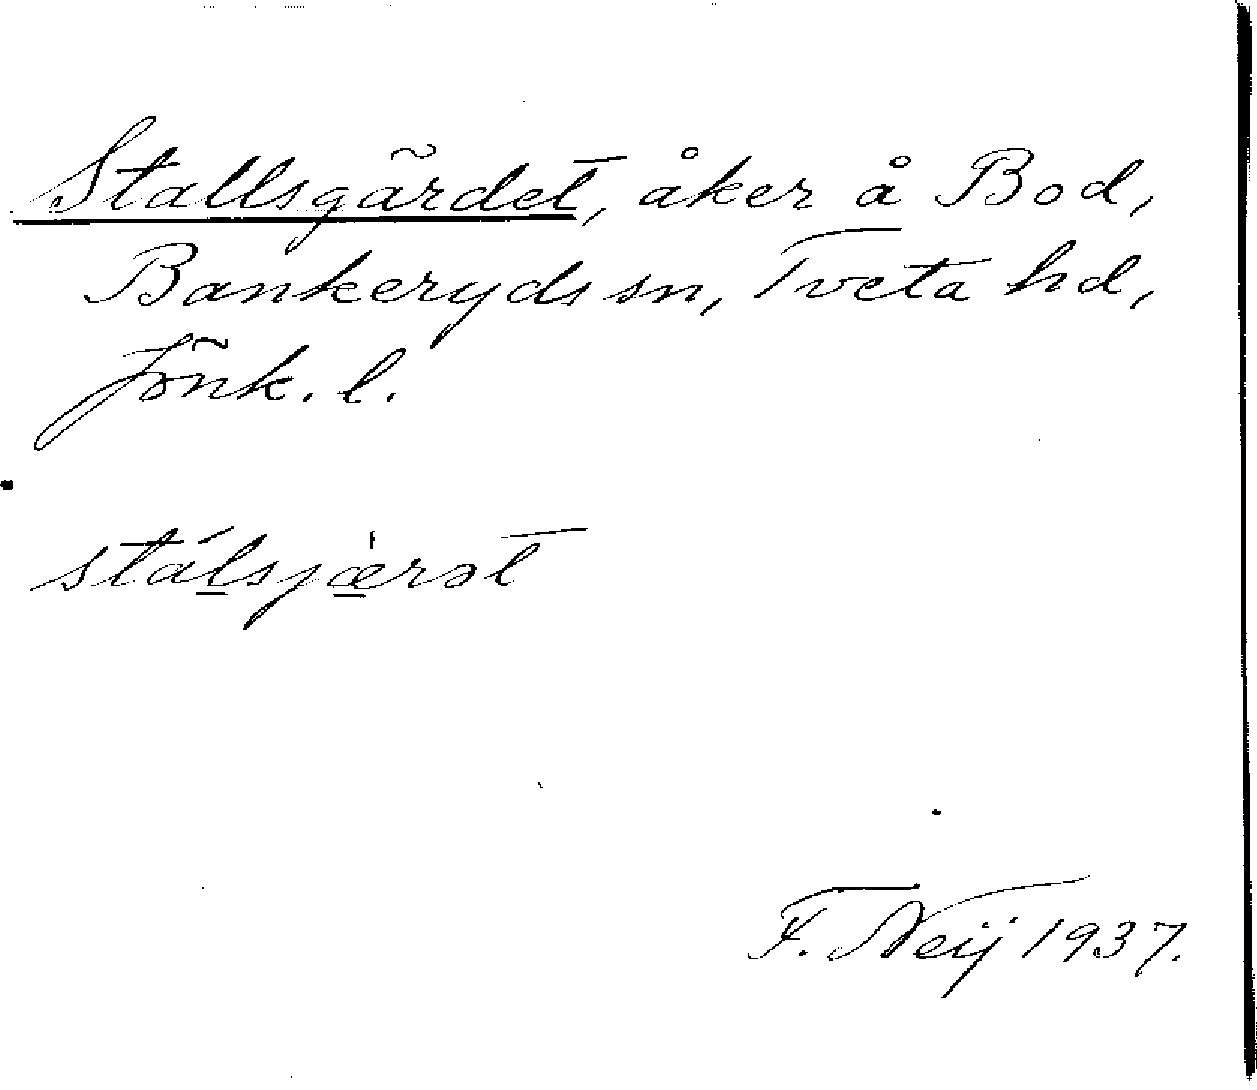 Stallsgärdet, åker å Bod,
Bankeryds sn, Tveta hd,
Jönk. l.
stálsjæ̀rət
F. Neij 1937.